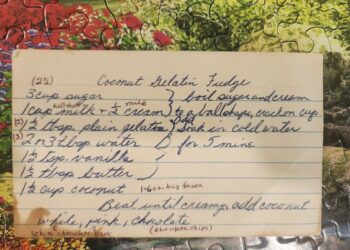 (2½) Coconut Gelatin Fudge
3 cup sugar } boil sugar and cream
half+half milk
1 cup milk + ½ cream } to a ball shape, crack on cup
(2) 1½ tbsp plain gelatin } Add Soak in cold water
(3) 2 or 3 tbsp water } for 5 mins.
1½ tsp. vanilla
1½ tbsp butter
1½ cup coconut 1-6 oz bag frozen
Beat until creamy, add coconut
White, pink, chocolate
White chocolate bark (chocolate chips)